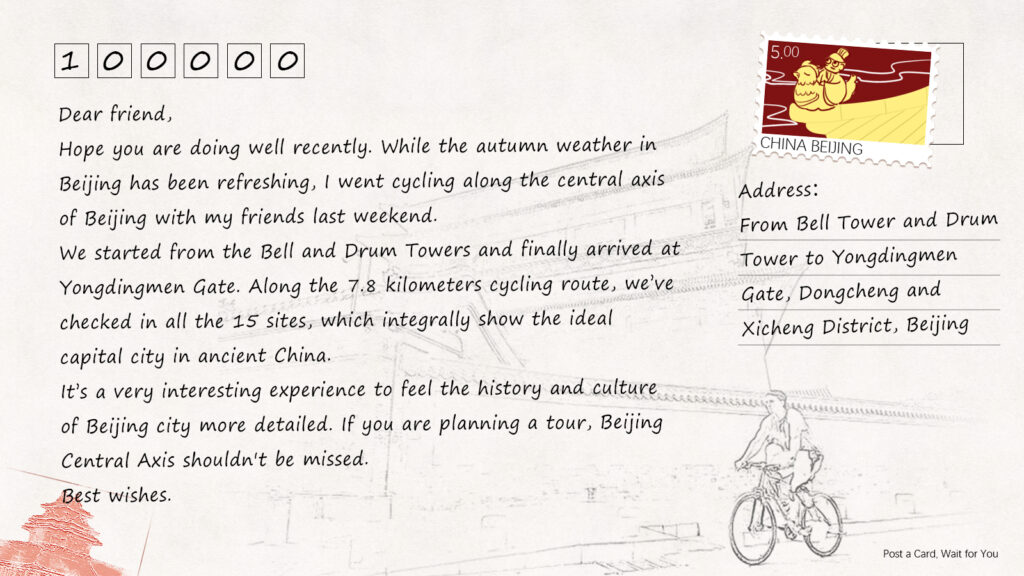 100000
Dear friend,
Hope you are doing well recently. While the autumn weather in
Beijing has been refreshing, I went cycling along the central axis
of Beijing with my friends last weekend.
We started from the Bell and Drum Towers and finally arrived at
Yongdingmen Gate. Along the 7.8 kilometers cycling route, we’ve
checked in all the 15 sites, which integrally show the ideal
capital city in ancient China.
It’s a very interesting experience to feel the history and culture
of Beijing city more detailed. If you are planning a tour, Beijing
Central Axis shouldn't be missed.
Best wishes.
5.00
CHINA BEIJING
Address:
From Bell Tower and Drum
Tower to Yongdingmen
Gate, Dongcheng and
Xicheng District, Beijing
Post a Card, Wait for You